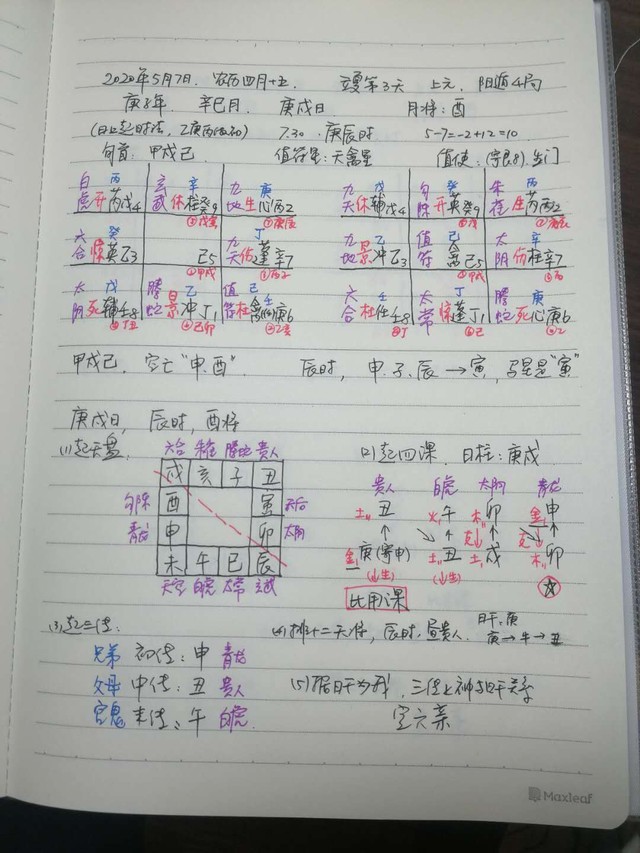 2020年5月7日. 农历四月十五. 立夏第3天 上元, 阳遁4局
庚子年. 辛巳月. 庚戌日 月将:酉
7.30 . 庚辰时 5-7=-2+12=10
旬首: 甲戌己 值符星:天禽星 值使:
白 丙 玄 辛 九 庚 九 戊 勾 癸 朱 丙
虎 开 芮戊4 武 休柱癸9 地生心丙2 天休辅戊4 陈开英癸9 雀生芮丙2
六 癸 丁 九 乙 值 己 太 辛
合 惊英乙3 己5 天伤蓬辛7 地景冲乙3 符 禽己5 阴伤柱辛7
太 戊 螣 乙 值 己 壬 六 壬 太 丁 螣 庚
阴死辅壬8 蛇景冲丁1 符杜 庚6 合杜任壬8 常惊蓬丁1 蛇死心庚6
甲戌己, 空亡“申.酉”. 辰时, 申.子.辰→寅, 马星是“寅”
庚戌日, 辰时, 酉将
(1)起天盘, 六合 朱雀 螣蛇 贵人 (2)起四课. 日柱:庚戌
戌 亥 子 丑 贵人 白虎 太阴 青龙
勾陈 酉 寅 天后 土 丑 火 午 木 卯 金 申
青龙 申 卯 太阴 金 庚(寄申) 土 丑 土 戌 木 卯
未 午 巳 辰 (生) (生)
天空 白虎 太常 玄武 比用课
(3)起三传: (4)排十二天将, 辰时.昼贵人. 日干:庚
庚→午→丑
兄弟 初传:申 青龙
父母 中传:丑 贵人 (5)据日干为我, 三传上神与日干关系
官鬼 末传:午 白虎. 定六亲
Maxleaf